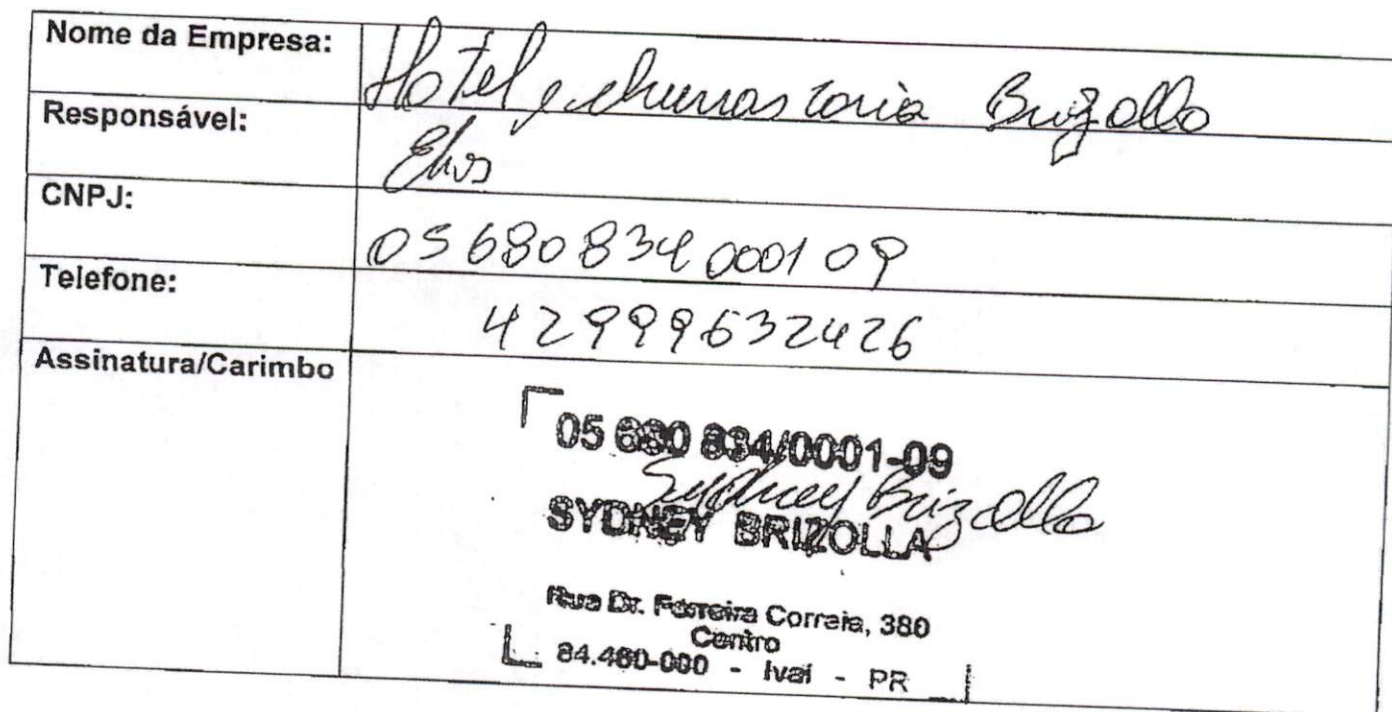 Nome da Empresa: Hotel e churrascaria Brizolla
Responsável: Elvis
CNPJ: 05 680 834 0001 09
Telefone: 42999632426
Assinatura/Carimbo
05 680 834/0001-09
Sydney Brizolla
SYDNEY BRIZOLLA
Rua Dr. Ferreira Correia, 380
Centro
84.460-000 - Ivaí - PR